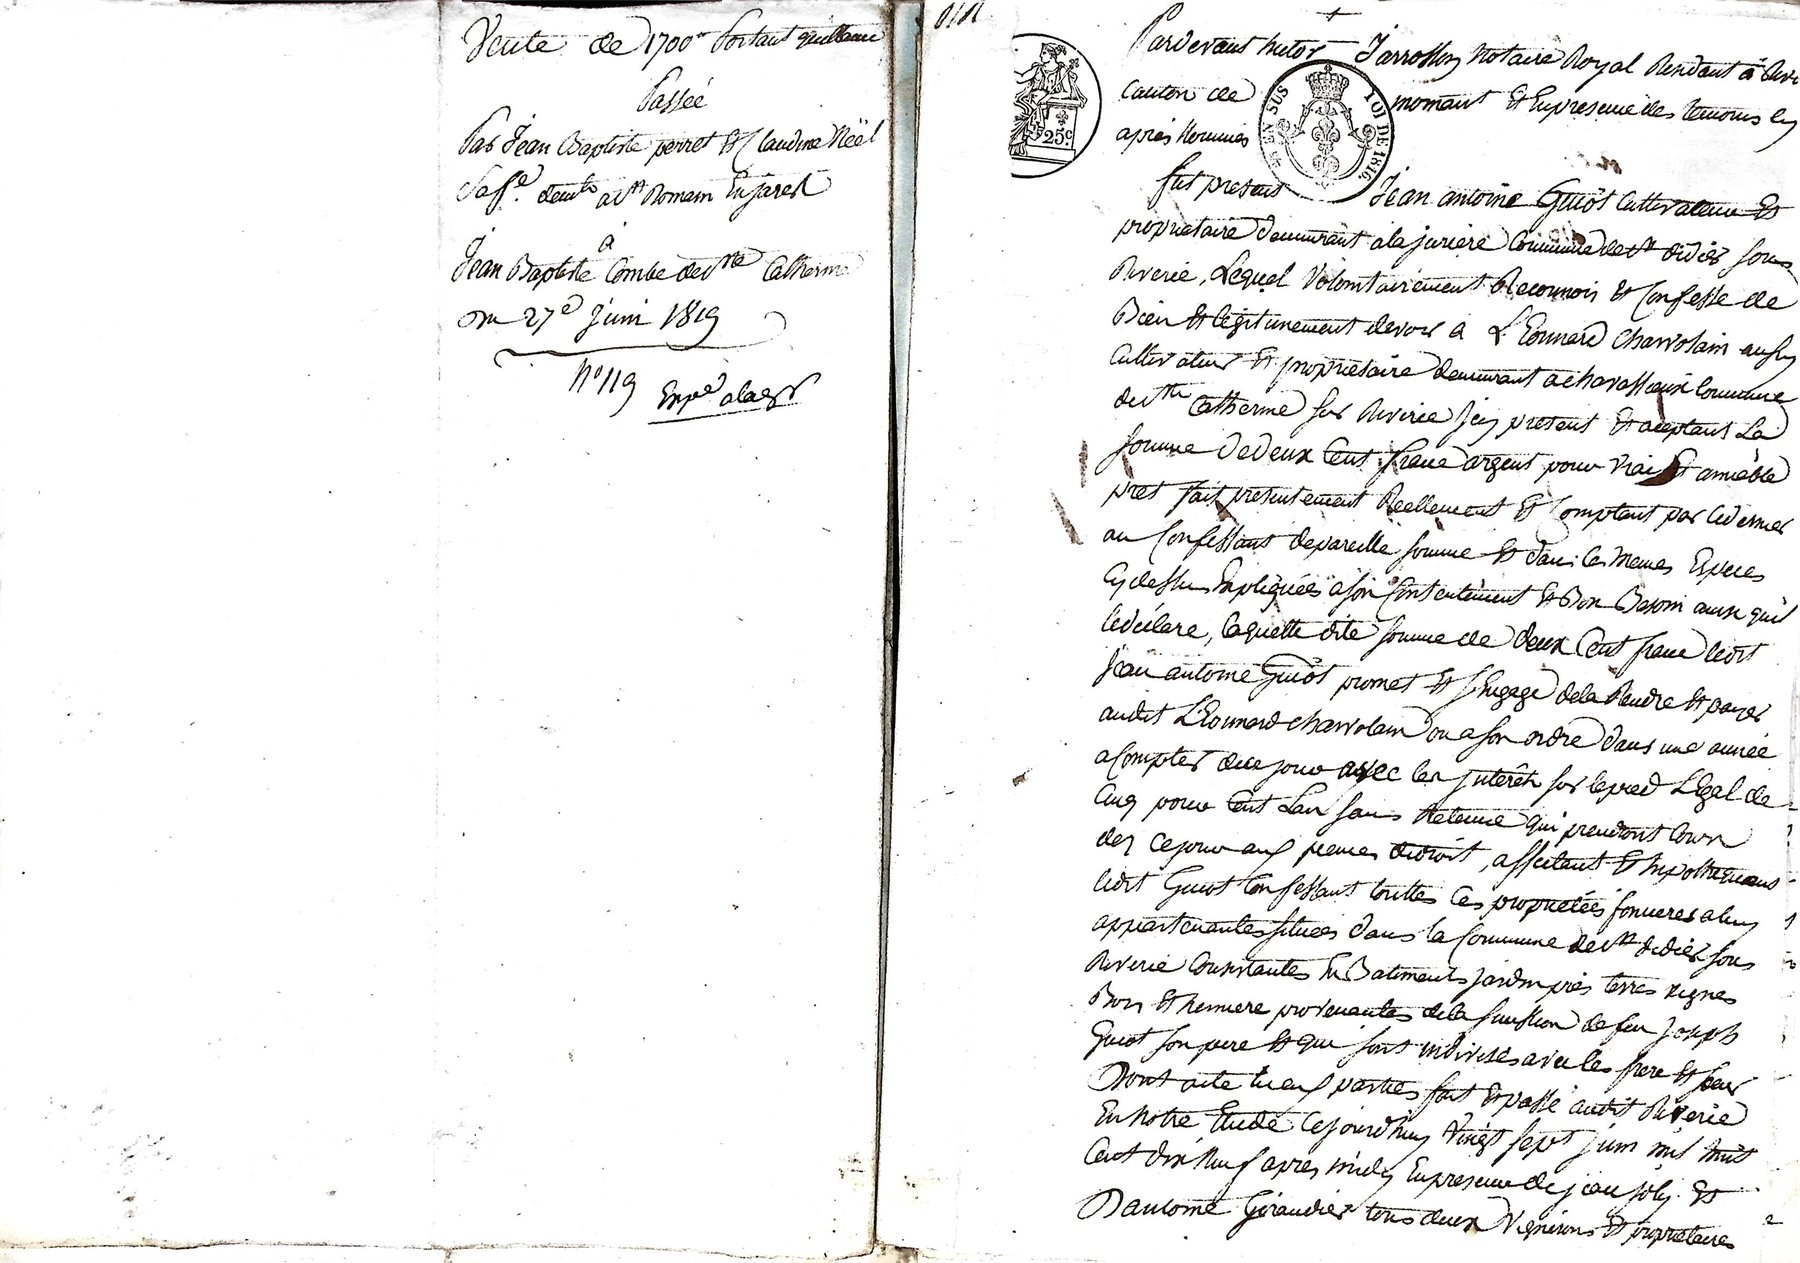 Vente de 1700 fr portant quittance
Passée
Par Jean Baptiste perret Et Claudine Néel
Sa ffe demts a St Romain En jarest
a
Jean Baptiste Combe de Ste Catherine
Du 27e juin 1819
No 119
Exppé
Pardevant Me Jarrosson Notaire Royal Rendant à Riverie
Canton de mornant Et En presence des temoins cy
après Nommés
25c.
EN SUS
LOI DE 1816
fut present Jean antoine Guiot Cultivateur Et
proprietaire demeurant a la juriere Commune de St didier sous
Riverie, Lequel Volontairement Reconnois Et Confesse de
Bien Et legitimement devoir a LEonnard Charvolain aussy
Cultivateur Et proprietaire demeurant a chavassieux Commune
de Ste Catherine sur Riverie Jcy present Et aceptant La
somme de deux Cent franc argent pour vrai Et amieable
pret fait presentement Réellement Et Comptant par ce dernier
au Confessant de pareille somme Et dans les memes Especes
Cy dessus Expliquées a son Contentement Et Bon Besoin ainsi qu'il
le déclare, laquelle dite somme de deux Cent franc ledit
Jean antoine Guiot promet Et s'Engage de la Rendre Et payer
audit LEonnard charvolain ou a son ordre dans une année
a Compter de ce jour avec les jnterêts sur le pied Légal de
Cinq pour Cent Lan sans Retenue qui prendront Cours
dez ce jour aux peines de droit, affectant Et hypothequant
ledit Guiot Confessant touttes ces proprietées foncieres a luy
appartenantes situées dans la Commune de St didier sous
Riverie Consistantes En Batiments jardin prés terres vignes
Bois Et herniere provenantes de la sucession de feu Joseph
Guiot son pere Et qui sont indivises avec les frere Et soeur
Dont acte lu aux parties fait Et passé audit Riverie
En Notre Etude Cejourd'huy Vingt sept juin mil huit
Cent dix Neuf apres midy En presence de jean joly Et
D'antoine Giraudier tous deux Vignerons Et proprietaires